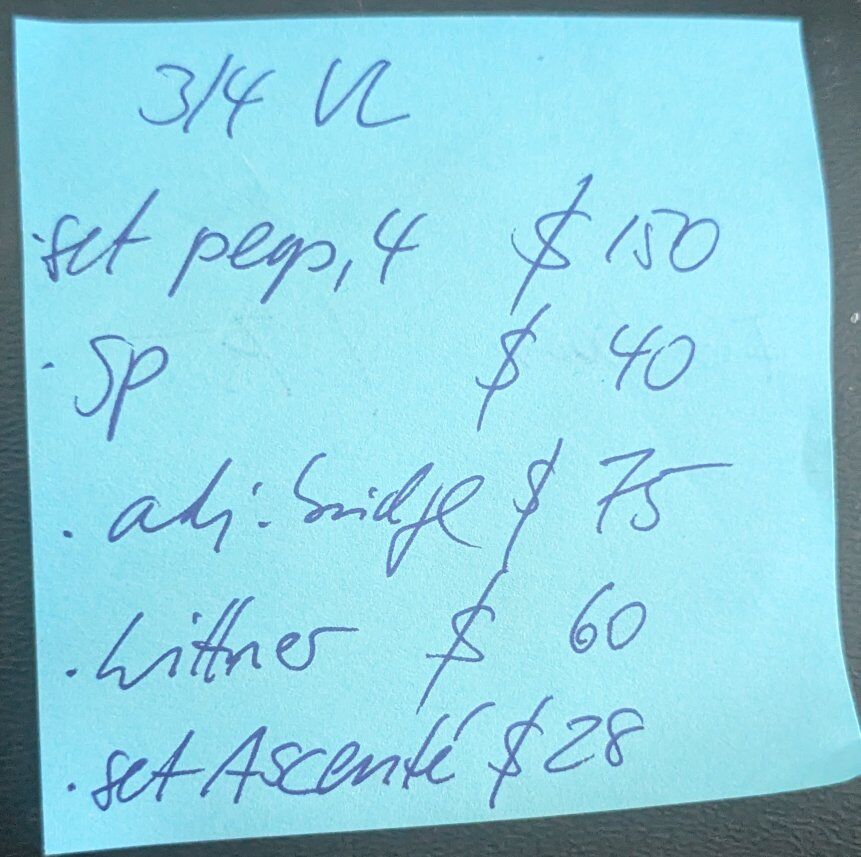 3/4 VL
· set pegs, 4 $ 150
· SP $ 40
· adj. bridge $ 75
· Wittner $ 60
· set Ascenté $ 28